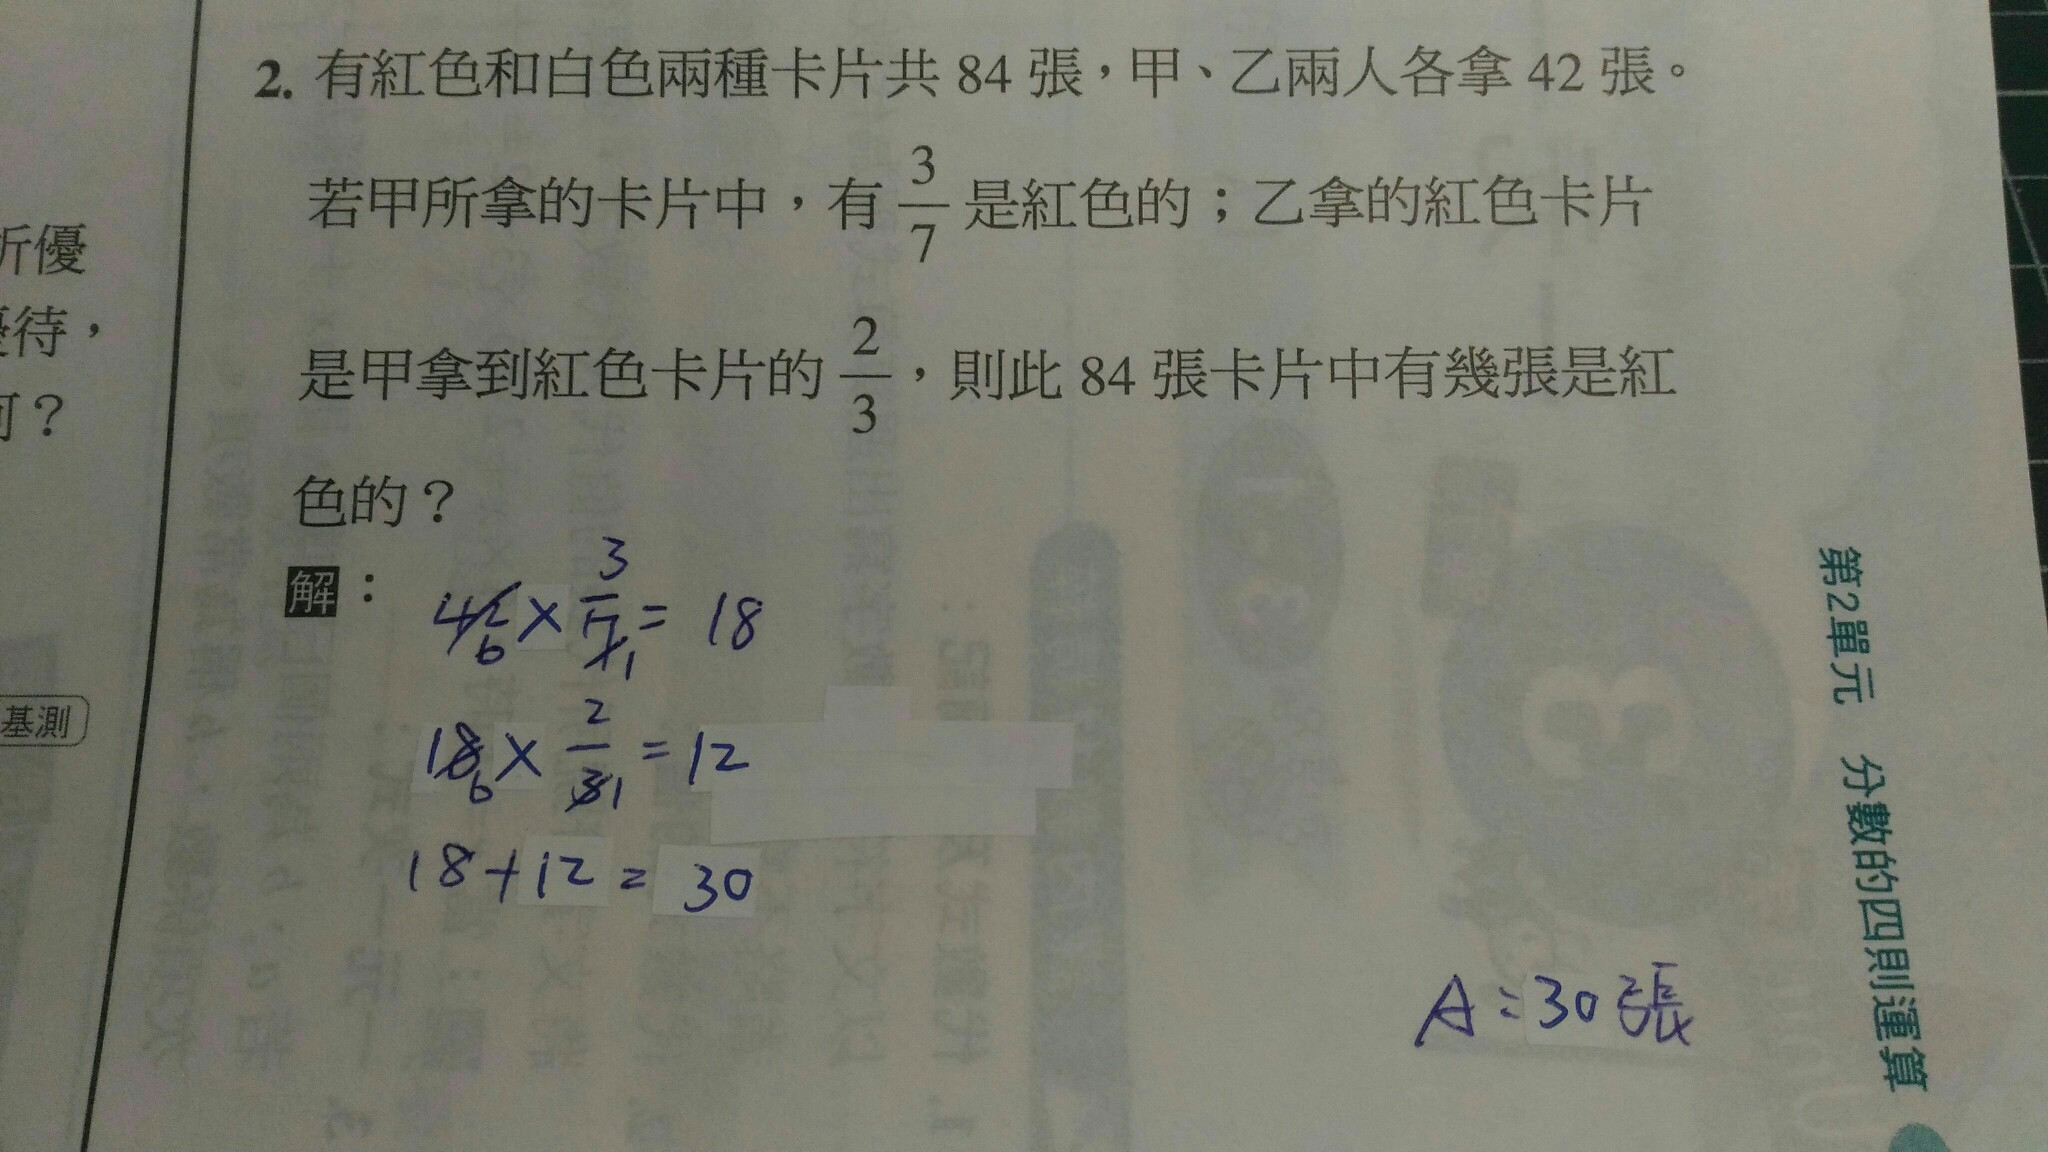 2. 有紅色和白色兩種卡片共 84 張，甲、乙兩人各拿 42 張。
若甲所拿的卡片中，有 3/7 是紅色的；乙拿的紅色卡片
是甲拿到紅色卡片的 2/3，則此 84 張卡片中有幾張是紅
色的？
解：
42 6 × 3/7 1 = 18
18 6 × 2/3 1 = 12
18+12 = 30
A：30張
折優
優待，
何？
基測
第2單元 分數的四則運算